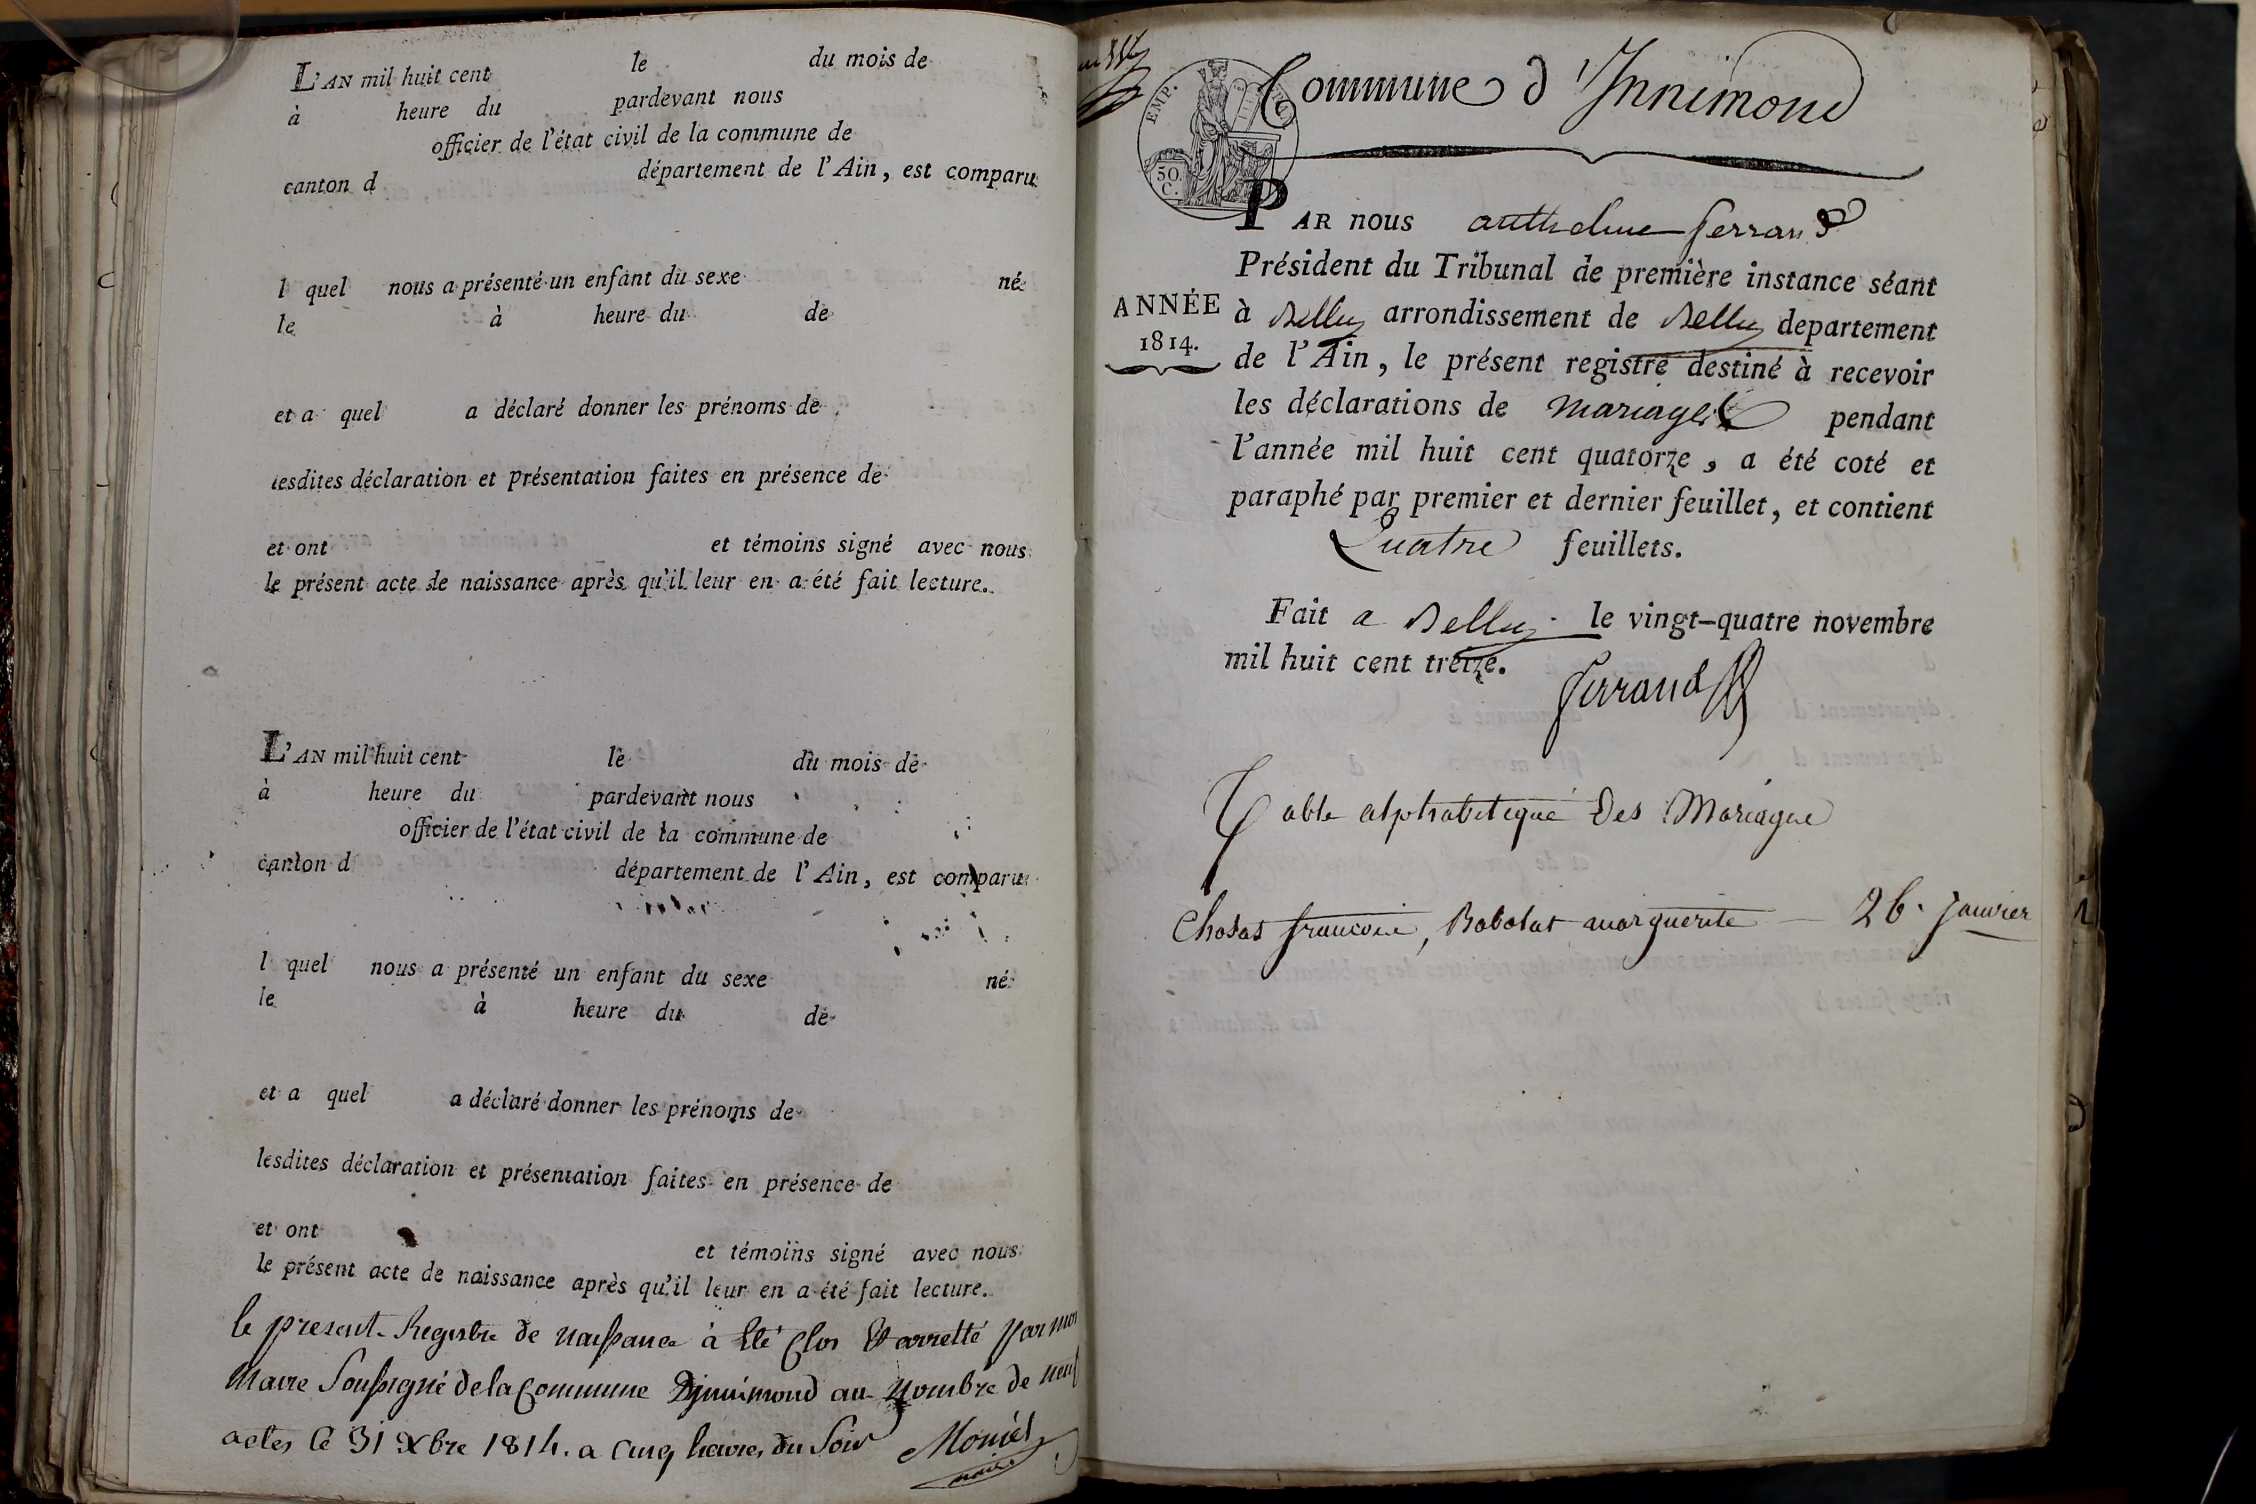 L'AN mil huit cent le du mois de
à heure du pardevant nous
officier de l'état civil de la commune de
canton d département de l'Ain, est comparu
l quel nous a présenté un enfant du sexe né
le à heure du de
et a quel a déclaré donner les prénoms de
lesdites déclaration et présentation faites en présence de
et ont et témoins signé avec nous
le présent acte de naissance après qu'il leur en a été fait lecture.
L'AN mil huit cent le du mois de
à heure du pardevant nous
officier de l'état civil de la commune de
canton d département de l'Ain, est comparu
l quel nous a présenté un enfant du sexe né
le à heure du de
et a quel a déclaré donner les prénoms de
lesdites déclaration et présentation faites en présence de
et ont et témoins signé avec nous
le présent acte de naissance après qu'il leur en a été fait lecture.
le present Registre de naissance à été Clos et arretté par moi
Maire Soussigné de la Commune Djnnimond au Nombre de neuf
actes le 31 Xbre 1814. a Cinq heures du Soir
maire
Commune d'Innimond
EMP.
50.
C.
PAR nous anthelme ferrand
Président du Tribunal de première instance séant
ANNÉE
1814.
à Belley arrondissement de Belley departement
de l'Ain, le présent registre destiné à recevoir
les déclarations de mariages pendant
l'année mil huit cent quatorze, a été coté et
paraphé par premier et dernier feuillet, et contient
Quatre feuillets.
Fait a Belley le vingt-quatre novembre
mil huit cent treize.
ferrand
Table alphabetique des Mariage
Chosas francois, Babolat marguerite — 26. janvier